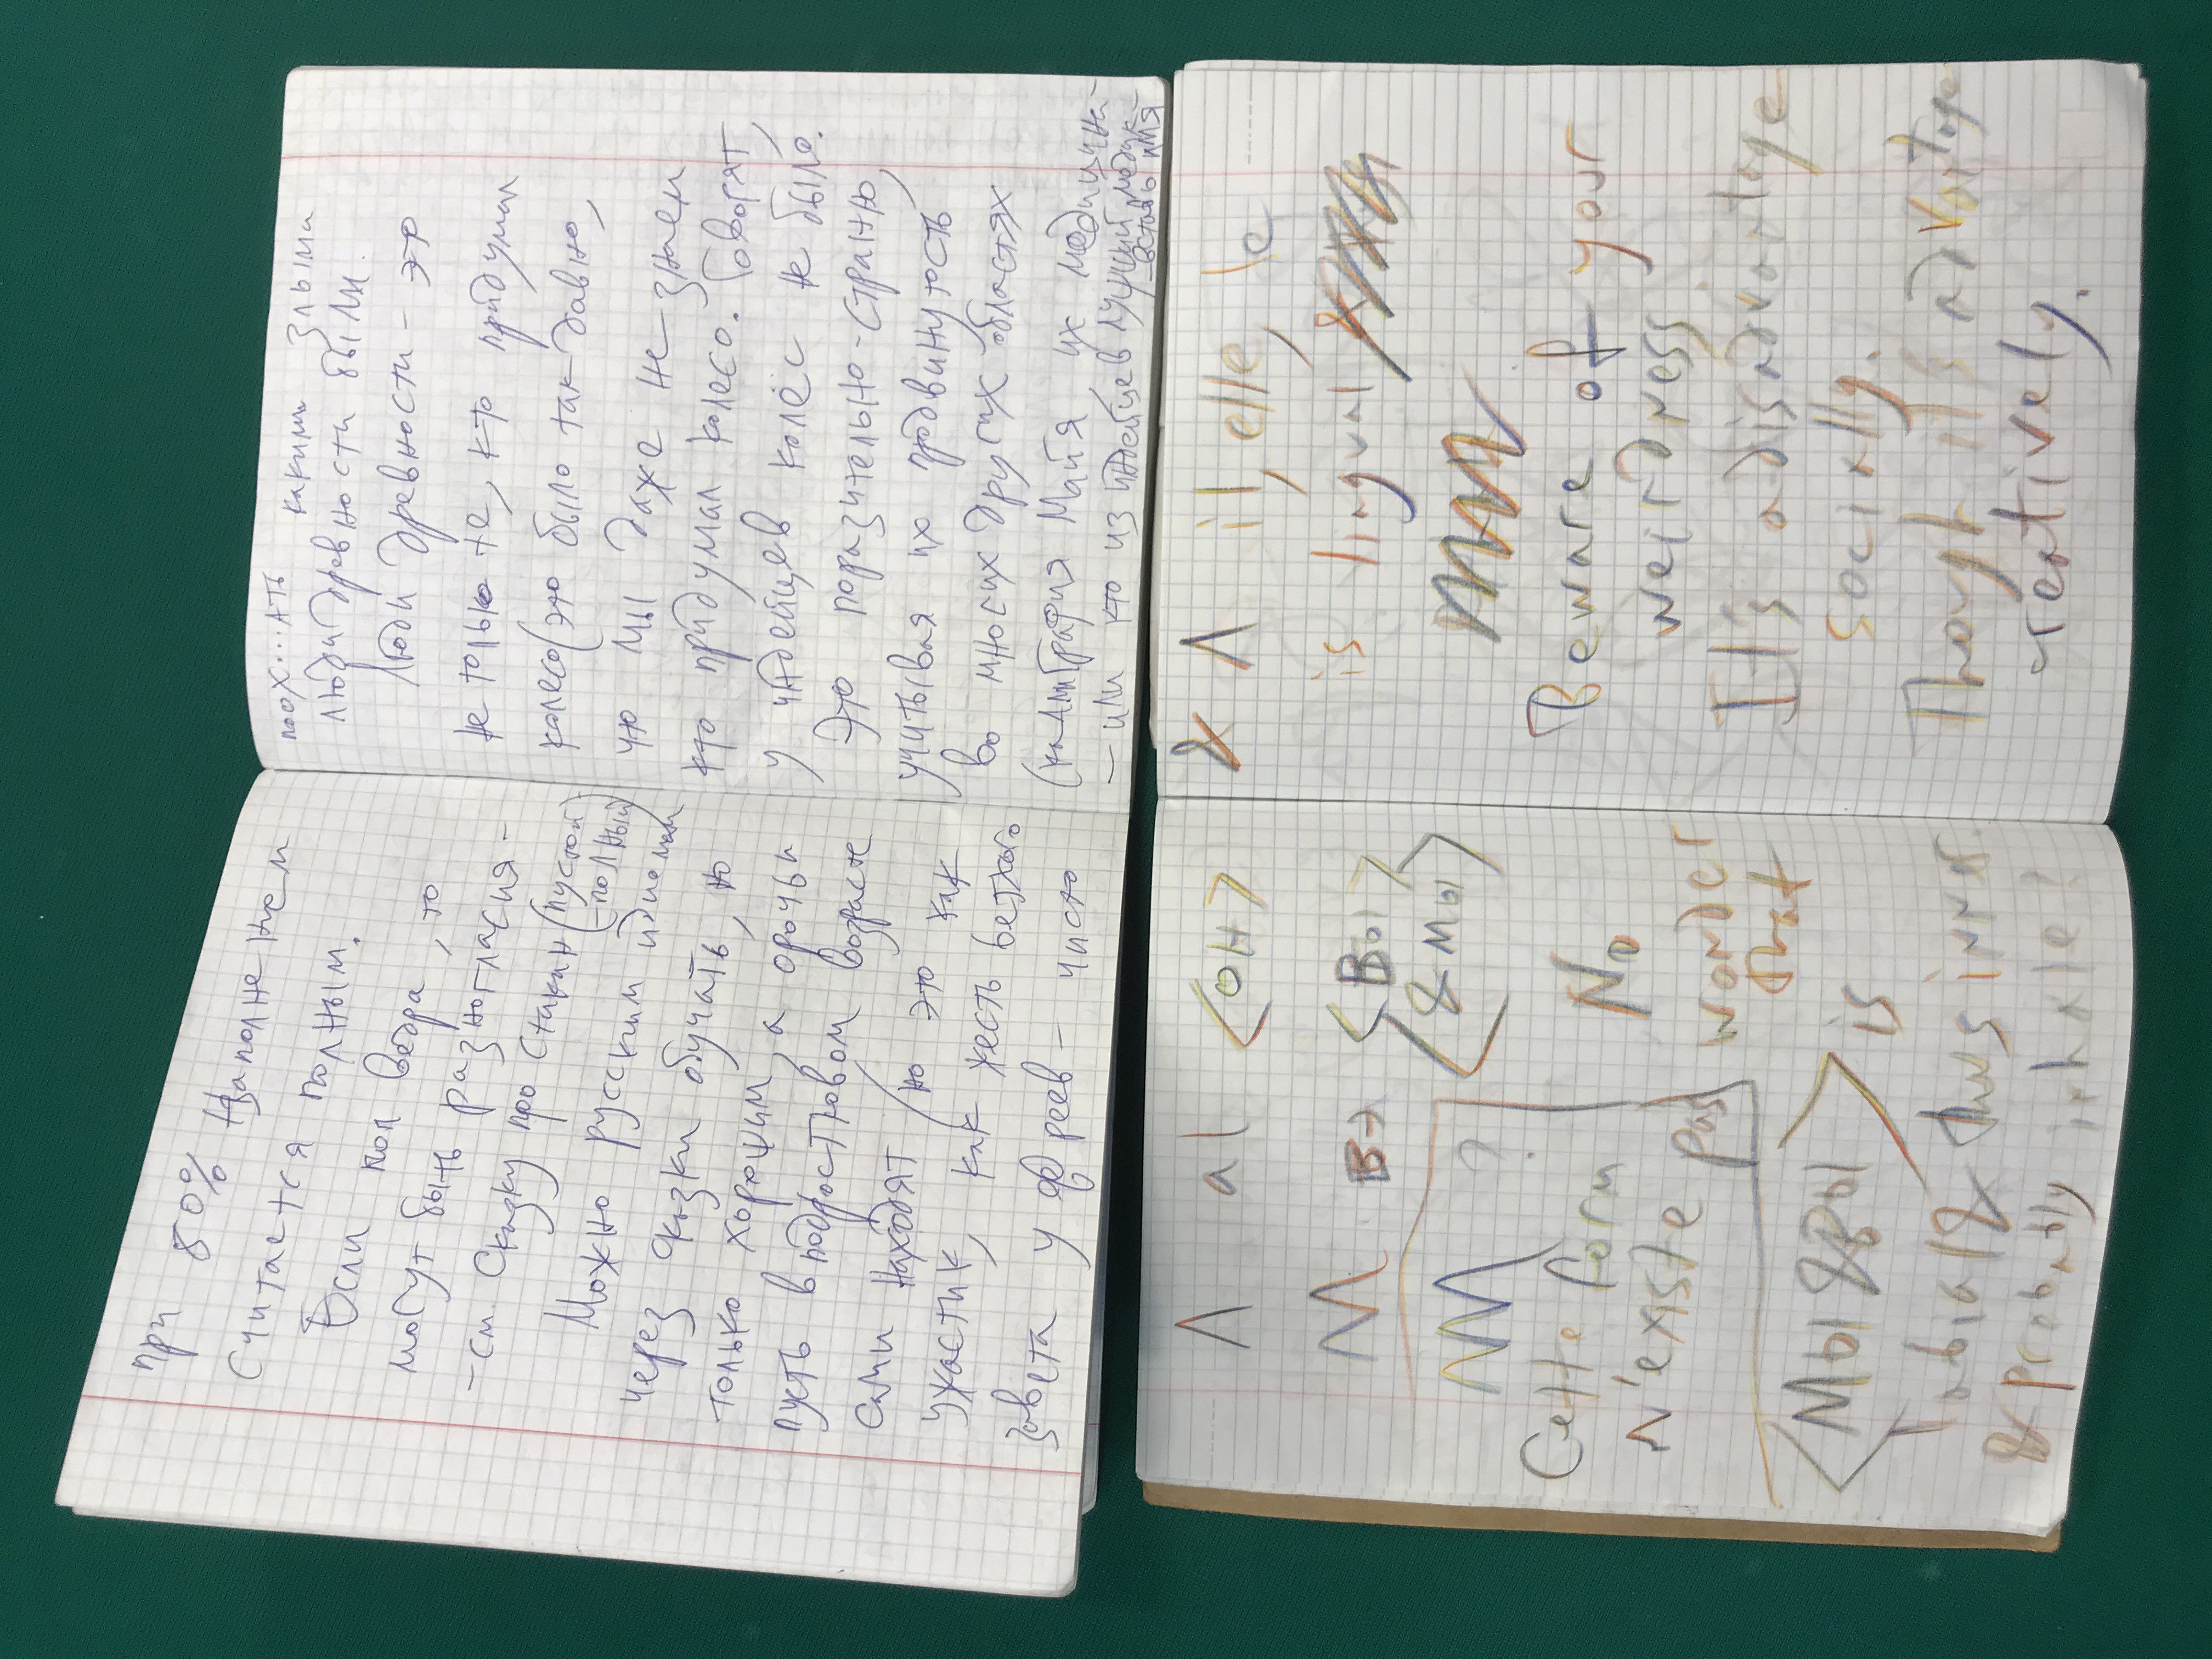 при 80% Наполнением
считается полным.
Если пол ведра, то
могут быть разногласия -
- см. Сказку про Стакан (пустой -
- полный)
Можно русским идиомам
через сказки обучать, но
только хорошим, а орочьи
пусть в подростковом возрасте
сами находят (но это как
ужастик, как жесть ветхого
завета у евреев - чисто
поох...ать какими злыми
люди древности были.
Люди древности - это
не только те, кто придумал
колесо (это было так давно,
что мы даже не знаем
кто придумал колесо. Говорят,
у индейцев колёс не было.
Это поразительно-странно,
учитывая их продвинутость
во многих других областях
(каллиграфия Майя, их медицина -
- или кто из индейцев лучший медик -
- вставь имя
Λ al <он>
M вэ <Вы>
<& мы>
ММ ?
Cette form
n'existe pas
No
wonder
that
<Мы & Вы> is
labial & thus inner
& probably inhale?
& Λ il, elle, le
is lingual
Beware of your
weirdness.
It's a disadvantage
socially.
Though it's advantage
creatively.